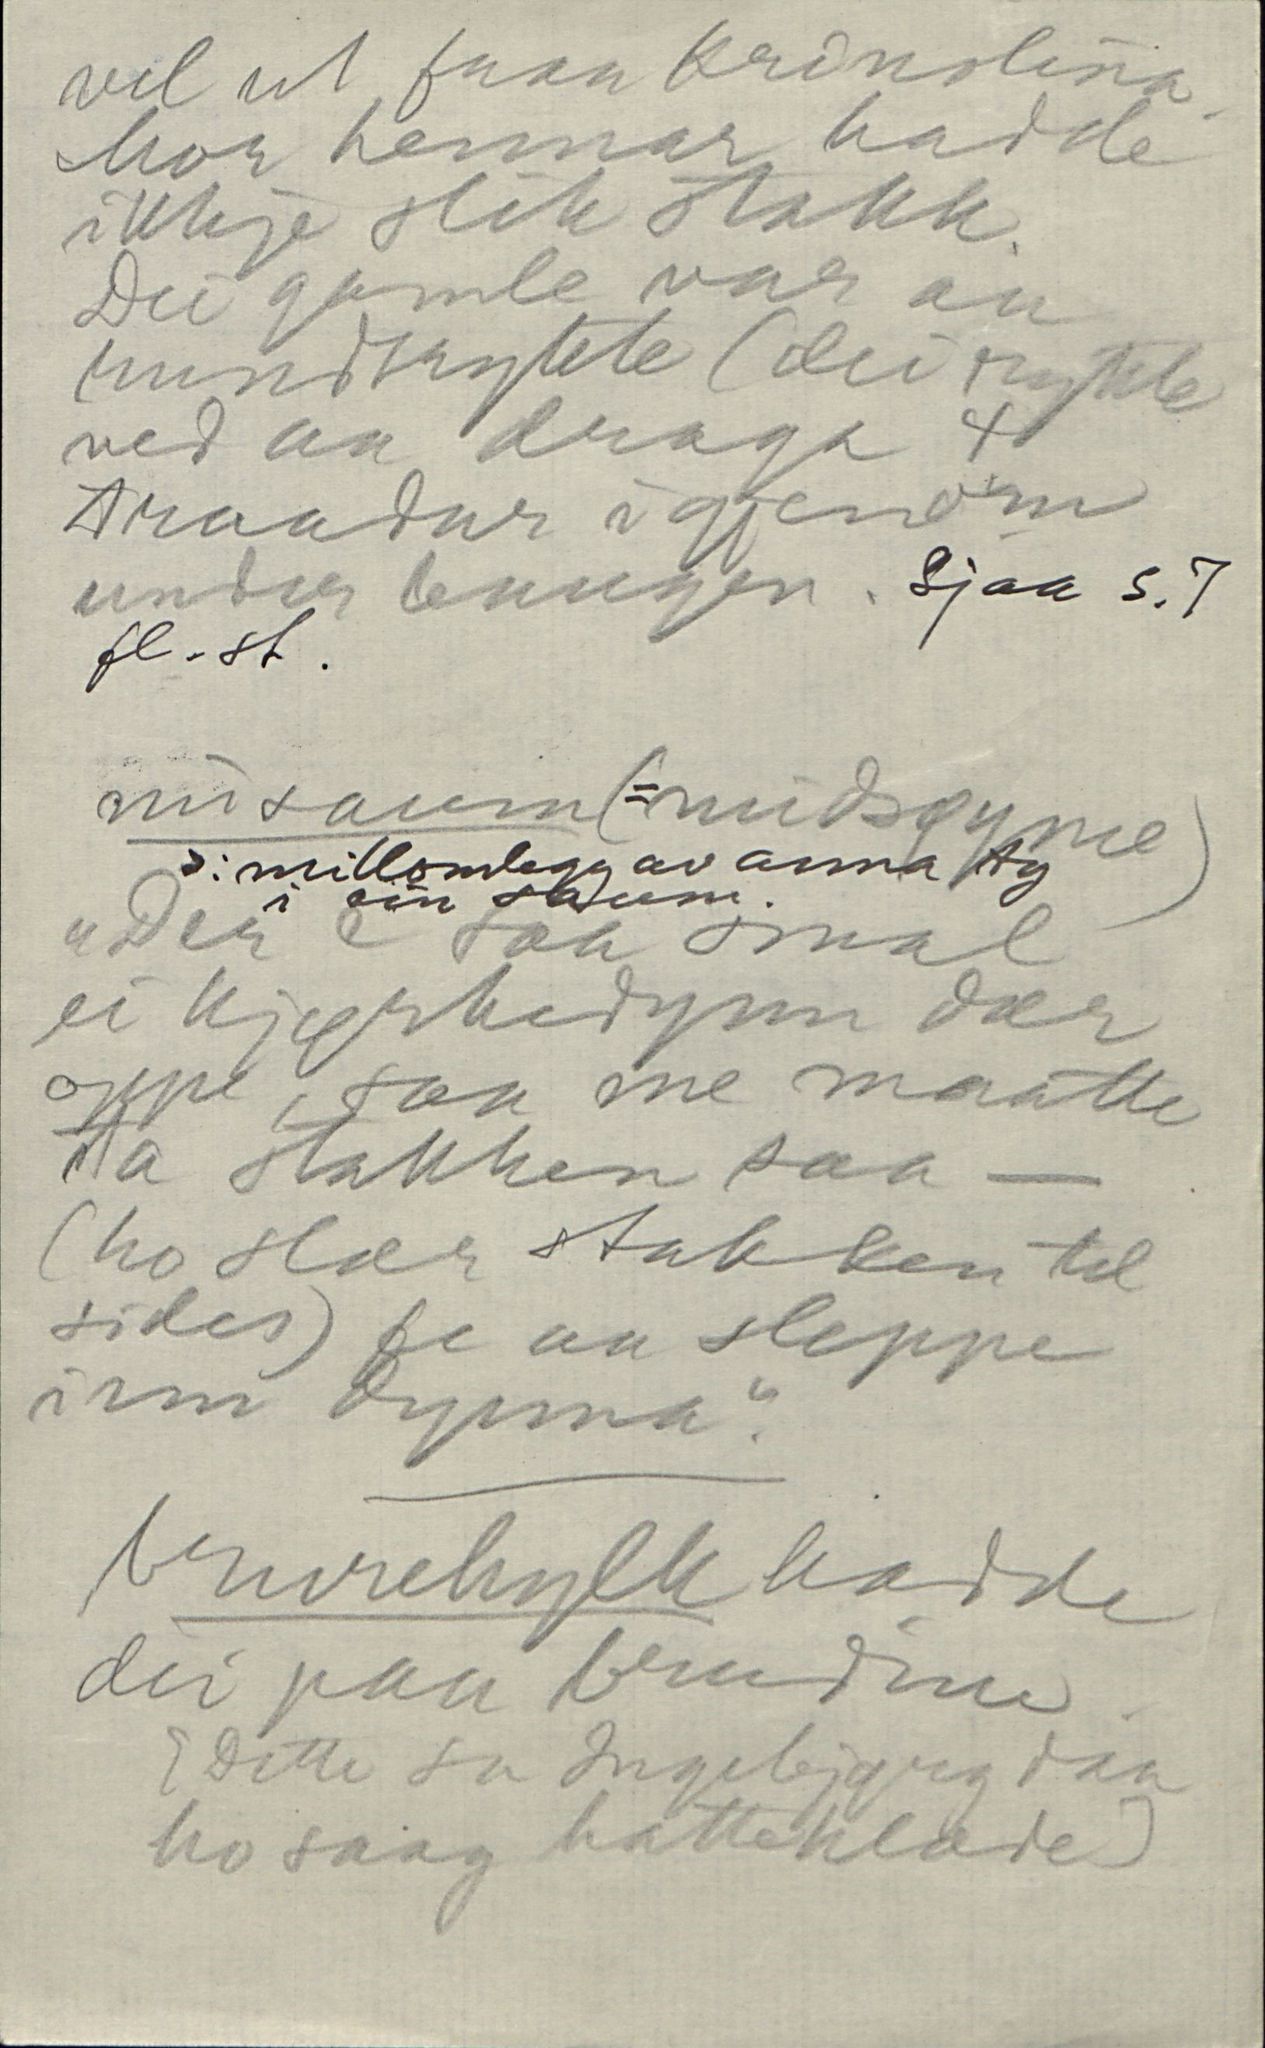 vel ut fraa krinolina.
Mor hennar hadde
ikkje slik stakk.
Dei gamle var au
rundtrykte (dei trykte
ved aa draga 4
traadar igjenom
under leuugen. Sjaa s. 7
fl. st.
misaum (= midsøyme)
ɔ: millomlegg av anna ty
i ein saum.
"Der e saa smal
ei kjørkedynn der
oppe, saa me maatte
ta stakken saa —
(ho slær stakken til
sides) fe aa sleppe
inn dynna".
brurehylk hadde
dei paa brudine.
[Dette sa Ingebjørg daa
ho saag hatteklade]